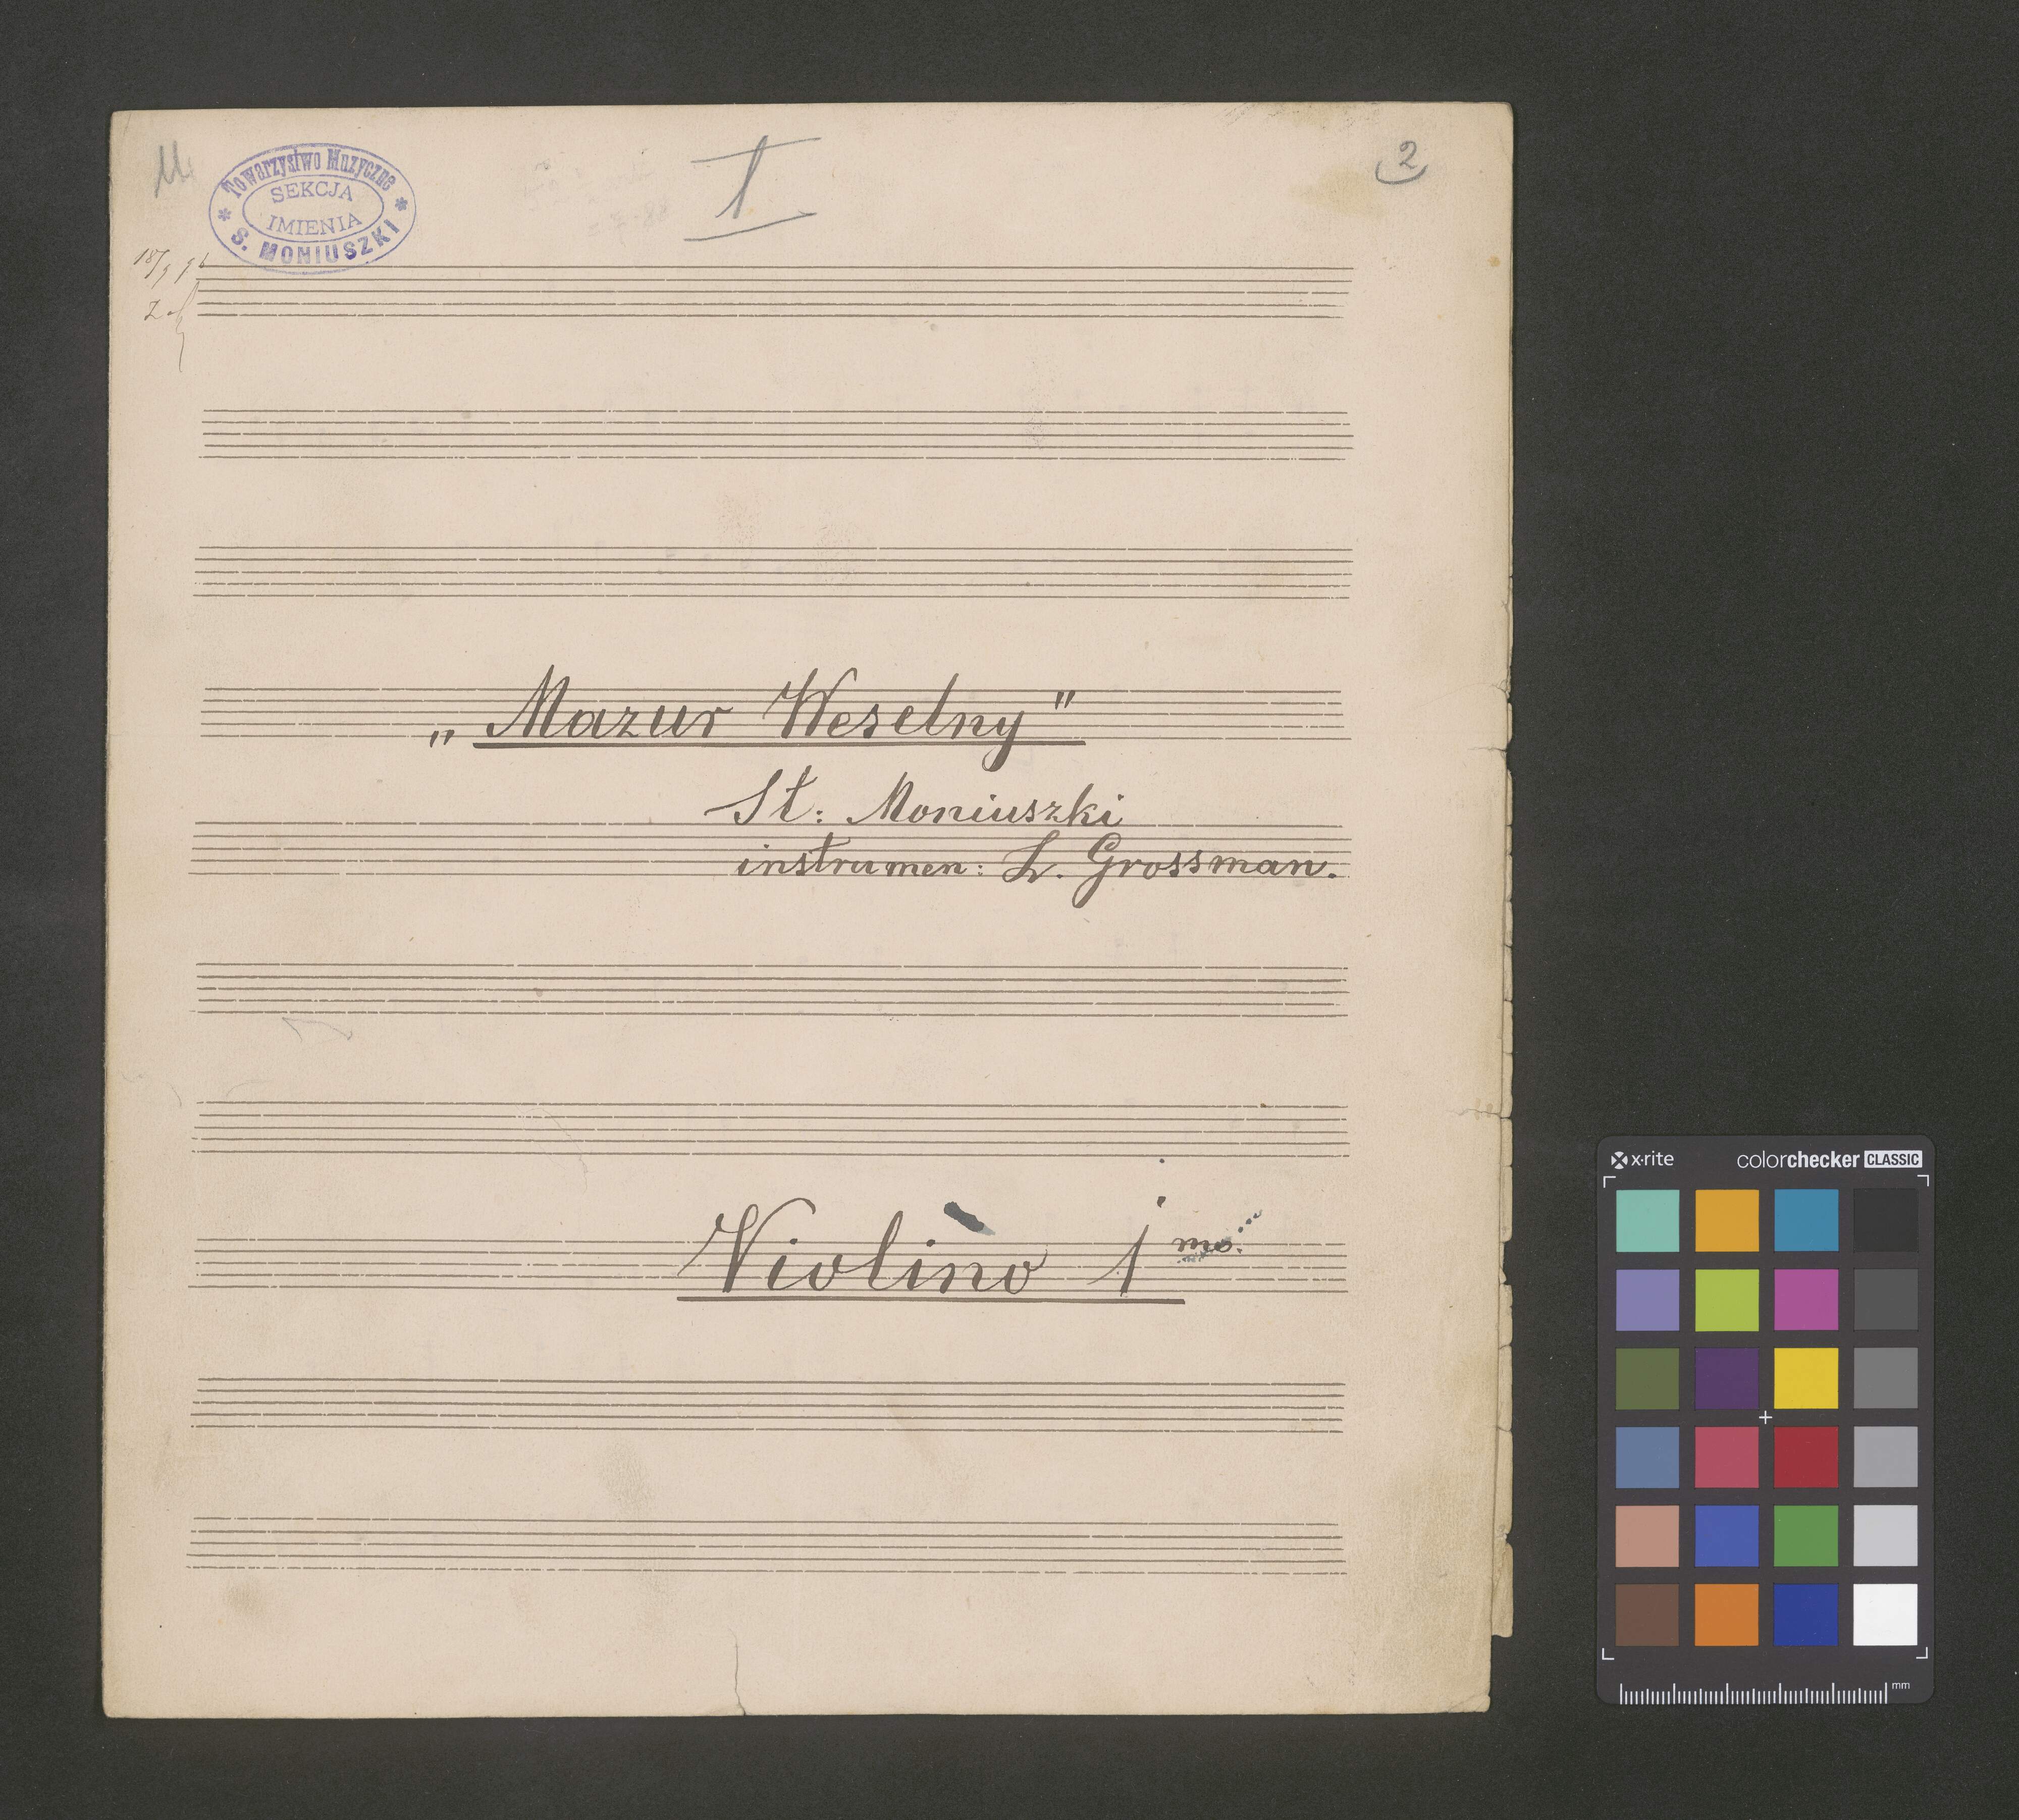 I
2
Towarzystwo Muzyczne
SEKCJA
IMIENIA
S. MONIUSZKI
„Mazur Weselny"
St: Moniuszki
instrumen: L. Grossman.
Violino 1mo
x·rite
colorchecker CLASSIC
mm